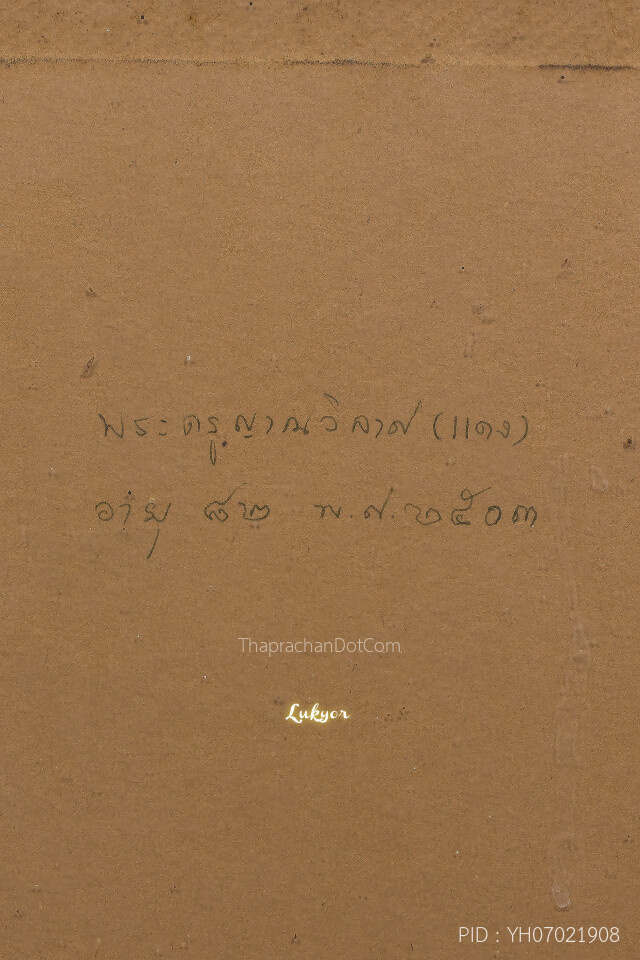 พระครูญาณวิลาศ (แดง)
อายุ ๘๒ พ.ศ. ๒๕๐๓
ThaprachanDotCom
Lukyor
PID : YH07021908